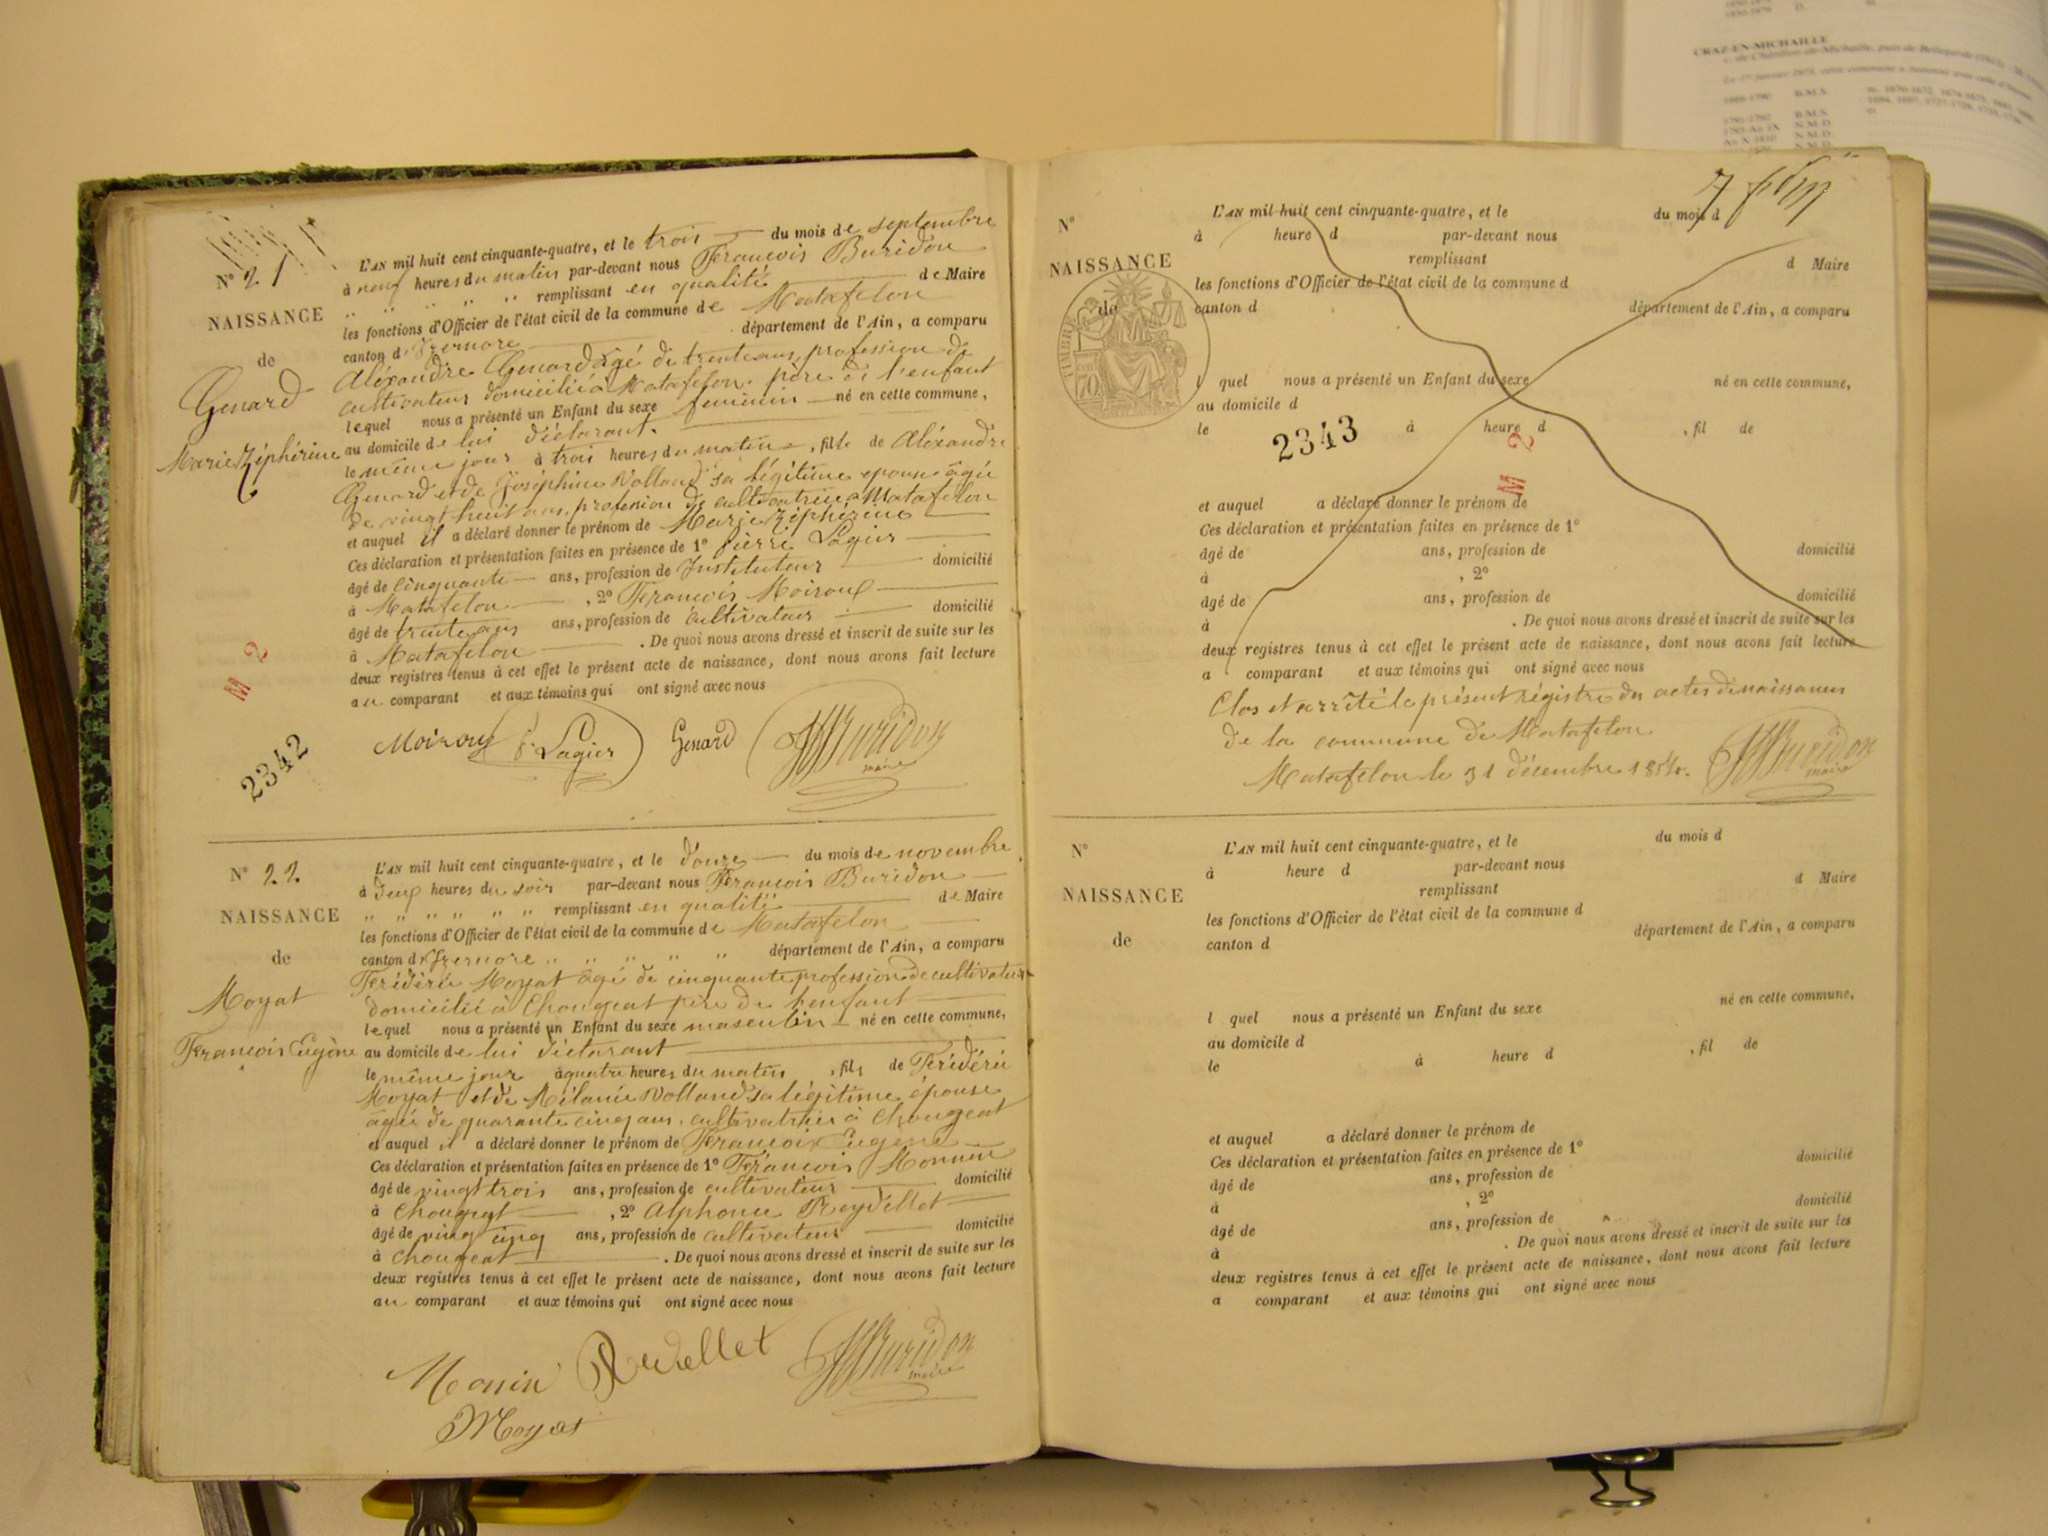 N° 21
NAISSANCE
de
Genard
Marie Zéphérine
L'AN mil huit cent cinquante-quatre, et le trois du mois de septembre
à neuf heures du matin par-devant nous François Buridon
" " " " remplissant en qualité de Maire
les fonctions d'Officier de l'état civil de la commune de Matafelon
canton d'Izernore département de l'Ain, a comparu
Aléxandre Genard âgé de trente ans, profession de
cultivateur domicilié à Matafelon père de l'enfant
lequel nous a présenté un Enfant du sexe feminin né en cette commune,
au domicile de lui déclarant.
le même jour à trois heures du matin, fille de Aléxandre
Genard et de Joséphine Volland sa légitime epouse âgée
de vingt huit ans, profession de cultivatrice à Matafelon
et auquel il a déclaré donner le prénom de Marie Zéphérine
Ces déclaration et présentation faites en présence de 1° Pierre Lagier
âgé de cinquante ans, profession de Instituteur domicilié
à Matafelon, 2° François Moiroux
âgé de trente ans ans, profession de cultivateur domicilié
à Matafelon. De quoi nous avons dressé et inscrit de suite sur les
deux registres tenus à cet effet le présent acte de naissance, dont nous avons fait lecture
au comparant et aux témoins qui ont signé avec nous
Moiroux P. Lagier Genard Buridon
maire
M 2
2342
N° 22
NAISSANCE
de
Moyat
François Eugène
L'AN mil huit cent cinquante-quatre, et le douze du mois de novembre
à deux heures du soir par-devant nous François Buridon
" " " " " " remplissant en qualité de Maire
les fonctions d'Officier de l'état civil de la commune de Matafelon
canton d'Izernore " " " " " département de l'Ain, a comparu
Frédéric Moyat âgé de cinquante profession de cultivateur
domicilié à Chougeat père de l'enfant
lequel nous a présenté un Enfant du sexe masculin né en cette commune,
au domicile de lui déclarant
le même jour à quatre heures du matin, fils de Frédéric
Moyat et de Mélanie Volland sa légitime épouse
âgée de quarante cinq ans, cultivatrice à Chougeat
et auquel il a déclaré donner le prénom de François Eugène
Ces déclaration et présentation faites en présence de 1° François Monnin
âgé de vingt trois ans, profession de cultivateur domicilié
à Chougeat, 2° Alphonse Reydellet
âgé de vingt cinq ans, profession de cultivateur domicilié
à Chougeat. De quoi nous avons dressé et inscrit de suite sur les
deux registres tenus à cet effet le présent acte de naissance, dont nous avons fait lecture
au comparant et aux témoins qui ont signé avec nous
Monin Buridon
maire
Moyat
N°
NAISSANCE
de
TIMBRE
70
L'AN mil huit cent cinquante-quatre, et le du mois d
à heure d par-devant nous
remplissant d Maire
les fonctions d'Officier de l'état civil de la commune d
canton d département de l'Ain, a comparu
l quel nous a présenté un Enfant du sexe né en cette commune,
au domicile d
le à heure d , fil de
2343
M 2
et auquel a déclaré donner le prénom de
Ces déclaration et présentation faites en présence de 1°
âgé de ans, profession de domicilié
à , 2°
âgé de ans, profession de domicilié
à . De quoi nous avons dressé et inscrit de suite sur les
deux registres tenus à cet effet le présent acte de naissance, dont nous avons fait lecture
a comparant et aux témoins qui ont signé avec nous
Clos et arrêté le présent régistre des actes de naissances
de la commune de Matafelon
Matafelon le 31 décembre 1854. Buridon
maire
N°
NAISSANCE
de
L'AN mil huit cent cinquante-quatre, et le du mois d
à heure d par-devant nous
remplissant d Maire
les fonctions d'Officier de l'état civil de la commune d
canton d département de l'Ain, a comparu
l quel nous a présenté un Enfant du sexe né en cette commune,
au domicile d
le à heure d , fil de
et auquel a déclaré donner le prénom de
Ces déclaration et présentation faites en présence de 1°
âgé de ans, profession de domicilié
à , 2°
âgé de ans, profession de domicilié
à . De quoi nous avons dressé et inscrit de suite sur les
deux registres tenus à cet effet le présent acte de naissance, dont nous avons fait lecture
a comparant et aux témoins qui ont signé avec nous
CRAZ-EN-MICHAILLE